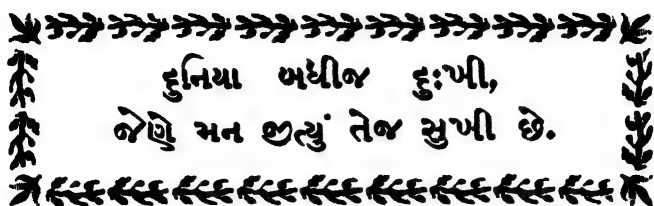 દુનિયા બધીજ દુઃખી,
જેણે મન જીત્યું તેજ સુખી છે.